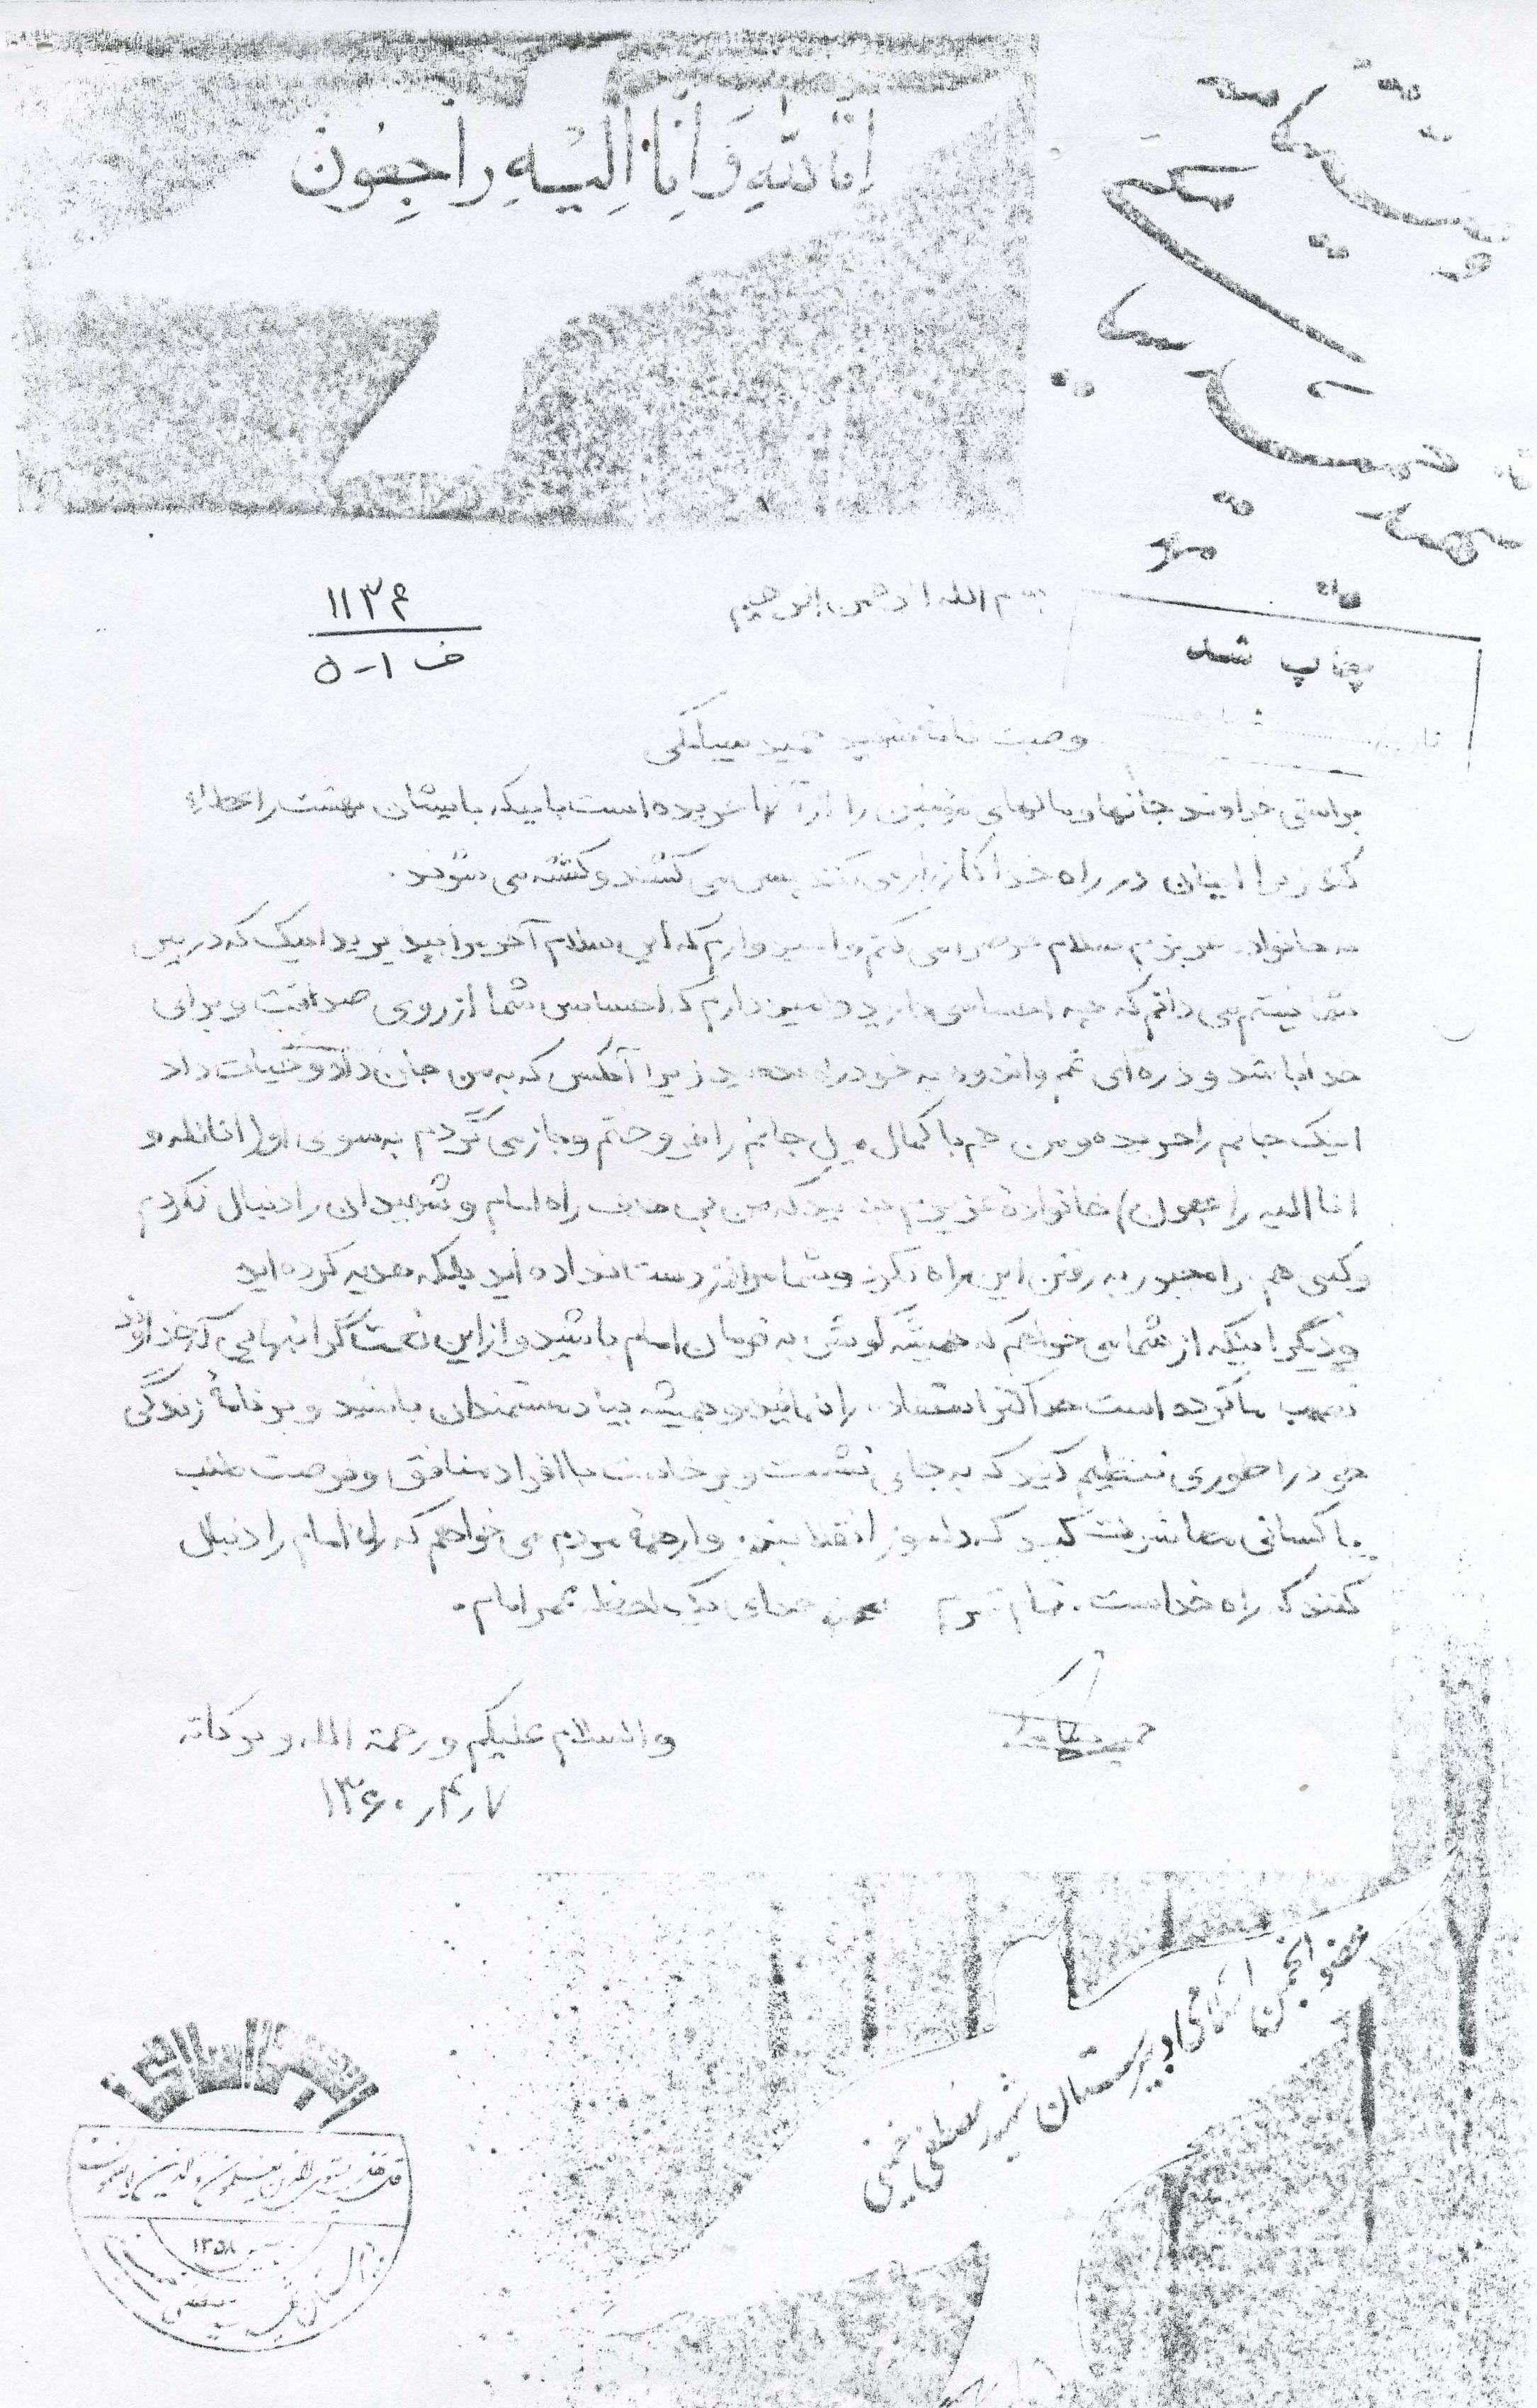 اِنّا لِلّٰهِ وَ اِنّا اِلَيْهِ راجِعُونَ
۱۱۳۴
ف ۱-۵
بسم الله الرحمن الرحیم
چاپ شد
وصیت نامه شهید حمید
براستی خداوند جانها و مالهای مؤمنین را از آنها خریده است باینکه بایشان بهشت را عطا
کند زیرا اینان در راه خدا کارزار می کنند پس می کشند و کشته می شوند.
به خانواده عزیزم سلام عرض می کنم و امیدوارم که این سلام آخر مرا بپذیرید اینک که در پیش
شما نیستم می دانم که چه احساسی دارید و امید دارم که احساس شما از روی صداقت و برای
خدا باشد و ذره ای غم و اندوه به خود راه ندهید زیرا آنکس که به من جان داد و حیات داد
اینک جانم را خریده و من هم با کمال میل جانم را فروختم و باز می گردم به سوی او (انا لله و
انا الیه راجعون) خانواده عزیزم که من بی هدف راه امام و شهیدان را دنبال نکردم
و کسی هم مرا مجبور به رفتن این راه نکرد و شما مرا از دست نداده اید بلکه هدیه کرده اید
و دیگر اینکه از شما می خواهم که همیشه گوش به فرمان امام باشید و از این نعمت گرانبهایی که خداوند
نصیب ما کرده است حداکثر استفاده را نمائید و همیشه بیاد مستمندان باشید و برنامهٔ زندگی
خود را طوری تنظیم کنید که به جای نشست و برخاست با افراد منافق و فرصت طلب
با کسانی معاشرت کنید که دلسوز انقلابند. و از همهٔ مردم می خواهم که راه امام را دنبال
کنند که راه خداست. تمام عمرم فدای یک لحظه عمر امام.
والسلام علیکم و رحمة الله و برکاته
۷ر۴ر۱۳۶۰
عضو انجمن اسلامی دبیرستان شهید مصطفی خمینی
انجمن اسلامی
۱۳۵۸